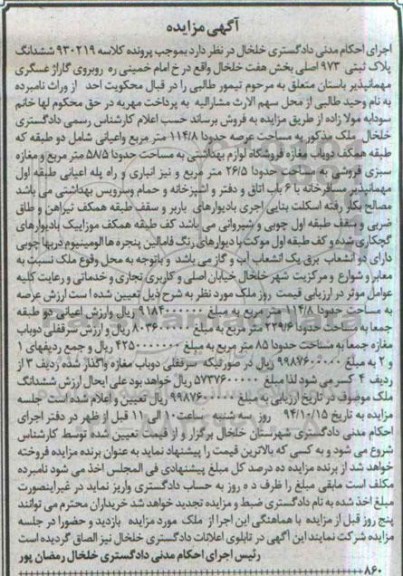 آگهی مزایده
اجرای احکام مدنی دادگستری خلخال در نظر دارد بموجب پرونده کلاسه ۹۳۰۲۱۹ ششدانگ
پلاک ثبتی ۹۷۳ اصلی بخش هفت خلخال واقع در خ امام خمینی ره روبروی گاراژ عسگری
مهمانپذیر باستان متعلق به مرحوم تیمور طالبی را در قبال محکومیت احد از وراث نامبرده
به نام وحید طالبی از محل سهم الارث مشارالیه به پرداخت مهریه در حق محکوم لها خانم
سودابه مولا زاده از طریق مزایده به فروش برساند حسب اعلام کارشناس رسمی دادگستری
خلخال ملک مذکور به مساحت عرصه حدودا ۱۱۴/۸ متر مربع واعیانی شامل دو طبقه که
طبقه همکف دوباب مغازه فروشگاه لوازم بهداشتی به مساحت حدودا ۵۸/۵ متر مربع و مغازه
سبزی فروشی به مساحت حدودا ۲۶/۵ متر مربع و نیز انباری و راه پله اعیانی طبقه اول
مهمانپذیر مسافرخانه با ۶ باب اتاق و دفتر و اشپزخانه و حمام وسرویس بهداشتی می باشد
مصالح بکار رفته اسکلت بنایی اجری بادیوارهای باربر و سقف طبقه همکف تیراهن و طاق
ضربی و سقف طبقه اول چوبی و شیروانی می باشد کف طبقه همکف موزاییک بادیوارهای
گچکاری شده و کف طبقه اول موکت با دیوار های رنگ قماتین پنجره ها الومینیوم دربها چوبی
دارای دو انشعاب برق یک انشعاب آب و گاز می باشد و باتوجه به محل وقوع ملک نسبت به
معابر و شوارع و مرکزیت شهر خلخال خیابان اصلی و کاربری تجاری و خدماتی و رعایت کلیه
عوامل موثر در ارزیابی قیمت روز ملک مورد نظر به شرح ذیل تعیین شده است ارزش عرصه
به مساحت حدودا ۱۱۴/۸ متر مربع به مبلغ ۹۱۸۴۰۰۰۰۰۰ ریال وارزش اعیانی دو طبقه
جمعا به مساحت حدودا ۲۲۹/۶ متر مربع به مبلغ ۸۰۳۶۰۰۰۰۰ ریال و ارزش سرقفلی دوباب
مغازه جمعا به مساحت حدودا ۸۵ متر مربع به مبلغ ۴۲۵۰۰۰۰۰۰۰ ریال و جمع ردیفهای ۱
و ۲ به مبلغ ۹۹۸۷۶۰۰۰۰۰ ریال در صورتیکه سرقفلی دوباب مغازه واگذار شده ردیف ۳ از
ردیف ۴ کسر می شود لذا مبلغ ۵۷۳۷۶۰۰۰۰۰ ریال خواهد بود علی ایحال ارزش ششدانگ
ملک موصوف در تاریخ ارزیابی به مبلغ ۹۹۸۷۶۰۰۰۰۰ ریال تعیین و اعلام شده است جلسه
مزایده به تاریخ ۹۴/۱۰/۱۵ روز سه شنبه ساعت ۱۰ الی ۱۱ قبل از ظهر در دفتر اجرای
احکام مدنی دادگستری شهرستان خلخال برگزار و از قیمت تعیین شده توسط کارشناس
شروع می شود و به کسی که بالاترین قیمت را پیشنهاد نماید به عنوان برنده مزایده فروخته
خواهد شد از برنده مزایده ده درصد کل مبلغ پیشنهادی فی المجلس اخذ می شود نامبرده
مکلف است مابقی مبلغ را ظرف ده روز به حساب دادگستری واریز نماید در غیراینصورت
مبلغ اخذ شده به نام دادگستری ضبط و مزایده تجدید خواهد شد خریداران محترم می توانند
پنج روز قبل از مزایده با هماهنگی این اجرا از ملک مورد مزایده بازدید و حضورا در جلسه
مزایده شرکت نمایند این آگهی در تابلوی اعلانات دادگستری خلخال نیز الصاق گردیده است
رئیس اجرای احکام مدنی دادگستری خلخال رمضان پور
۸۶۰